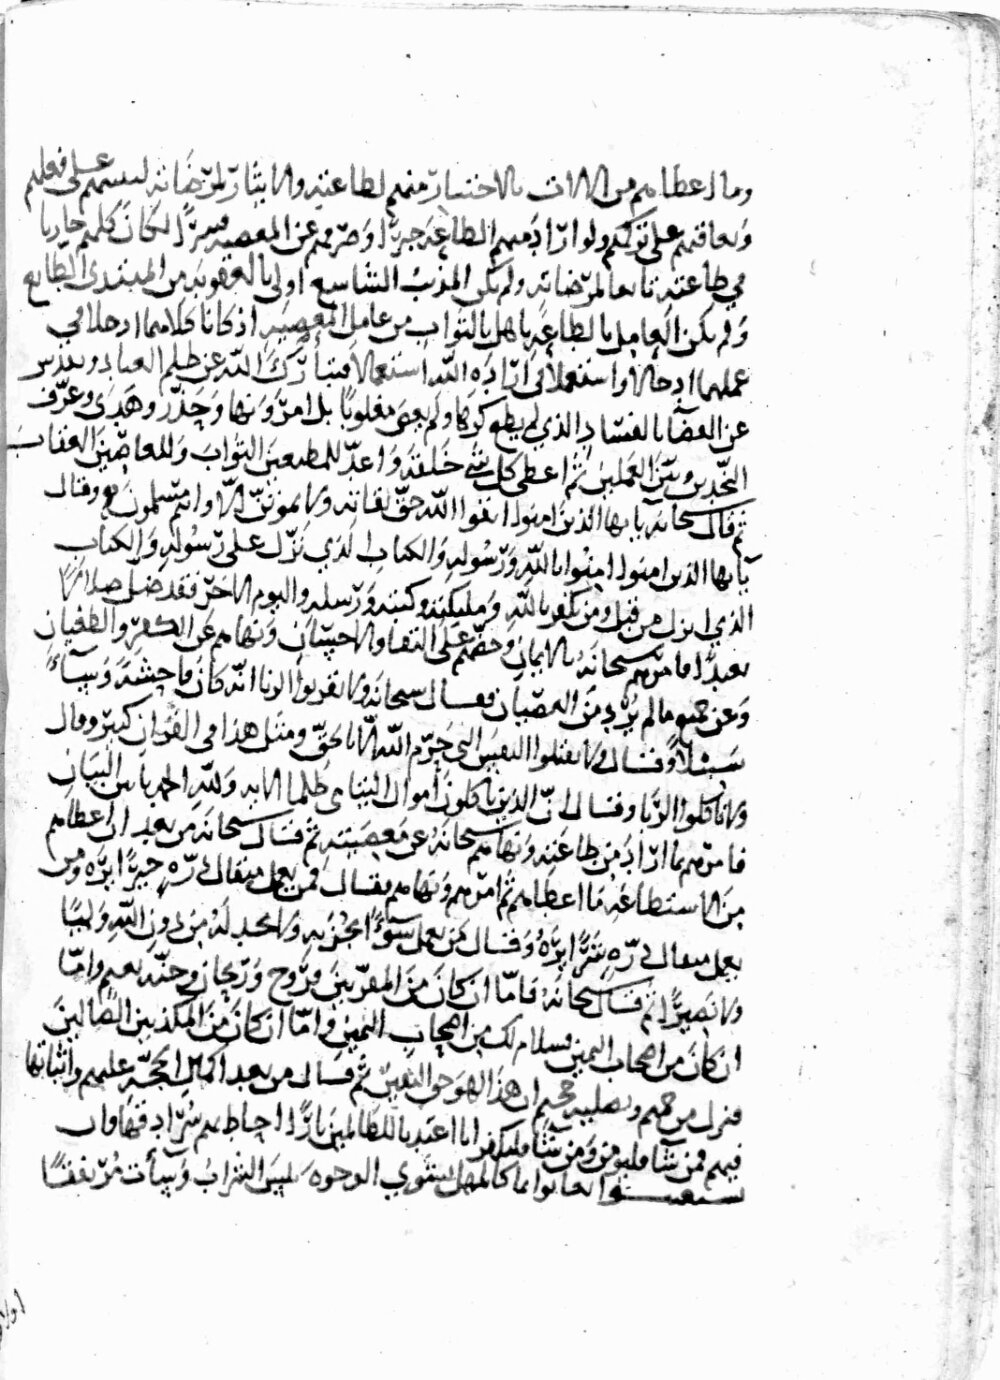 وما اعطاهم من الالات بالاختيار منهم لطاعته والايثار لمرضاته ليثيبهم على فعلهم
ويعاقبهم على تركهم ولو اراد منهم الطاعة جبرًا وصرفهم عن المعصية قسرًا لكان كلهم جاريا
في طاعته تابعا لمرضاته ولم يكن المذنب الشاسع اولى بالعقوبة من المهتدي الطايع
ولم يكن العامل بالطاعة باهل بالثواب من عامل المعصية اذ كانا كلاهما ادخلا في
عملهما ادخالا واستعملا في ارادة الله استعمالا فتبارك الله عن ظلم العباد وتقدس
عن القضآ بالفساد الذي لم يطع كرها ولم يعص مغلوبًا بل امر ونها وحذر وهدى وعرف
النجدين وبين العملين ثم اعطى كل شي خلقه واعد للمطيعين الثواب وللعاصين العقاب
ثم قال سبحانه يايها الذين امنوا اتقوا الله حق تقاته ولا تموتن الا وانتم مسلمون وقال
يايها الذين امنوا امنوا بالله ورسوله والكتاب الذي نزل على رسوله والكتاب
الذي انزل من قبل ومن يكفر بالله وملئكته وكتبه ورسله واليوم الاخر فقد ضل ضلالًا
بعيدًا فامرهم سبحانه بالايمان وحضهم على التقا والاحسان ونهاهم عن الكفر والطغيان
وعن جميع ما لم يرد من العصيان فقال سبحانه ولا تقربوا الزنا انه كان فاحشة وسآء
سبيلًا وقال ولا تقتلوا النفس التي حرم الله الا بالحق ومثل هذا في القران كثير وقال
ولا تاكلوا الربا وقال ان الذين ياكلون اموال اليتامى ظلما الاية ولله الحمد باين البيان
فامرهم بما اراد من طاعته ونهاهم سبحانه عن معصيته ثم قال سبحانه من بعد ان اعطاهم
من الاستطاعة ما اعطاهم ثم امرهم ونهاهم فقال فمن يعمل مثقال ذرة خيرًا يره ومن
يعمل مثقال ذرة شرًا يره وقال من يعمل سوءًا يجز به ولا يجد له من دون الله وليًا
ولا نصيرًا ثم قال سبحانه فاما ان كان من المقربين فروح وريحان وجنة نعيم واما
ان كان من اصحاب اليمين فسلام لك من اصحاب اليمين واما ان كان من المكذبين الضالين
فنزل من حميم وتصلية جحيم ان هذا لهو حق اليقين ثم قال من بعد اكمال الحجة عليهم واثباتها
فيهم فمن شآ فليومن ومن شآ فليكفر انا اعتدنا للظالمين نارًا احاط بهم سرادقها وان
يستغيثوا يغاثوا بما كالمهل يشوي الوجوه بيس الشراب وسآت مرتفقًا